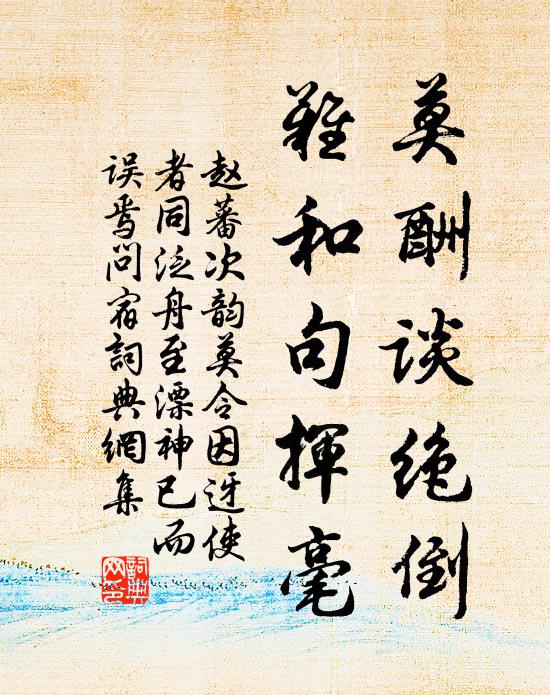 莫酬谈绝倒
难和句揮毫
赵蕃次韵莫令因迓使
者同泛舟至漂神已而
误焉问宿詞典網集